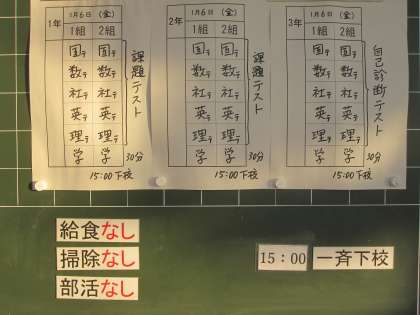 1年
1月6日（金）
1組 2組
国テ 国テ
数テ 数テ
社テ 社テ
英テ 英テ
理テ 理テ
学 学
課題テスト
30分
15:00下校
2年
1月6日（金）
1組 2組
国テ 国テ
数テ 数テ
社テ 社テ
英テ 英テ
理テ 理テ
学 学
課題テスト
30分
15:00下校
3年
1月6日（金）
1組 2組
国テ 国テ
数テ 数テ
社テ 社テ
英テ 英テ
理テ 理テ
学 学
自己診断テスト
30分
15:00下校
給食なし
掃除なし
部活なし
15：00 一斉下校